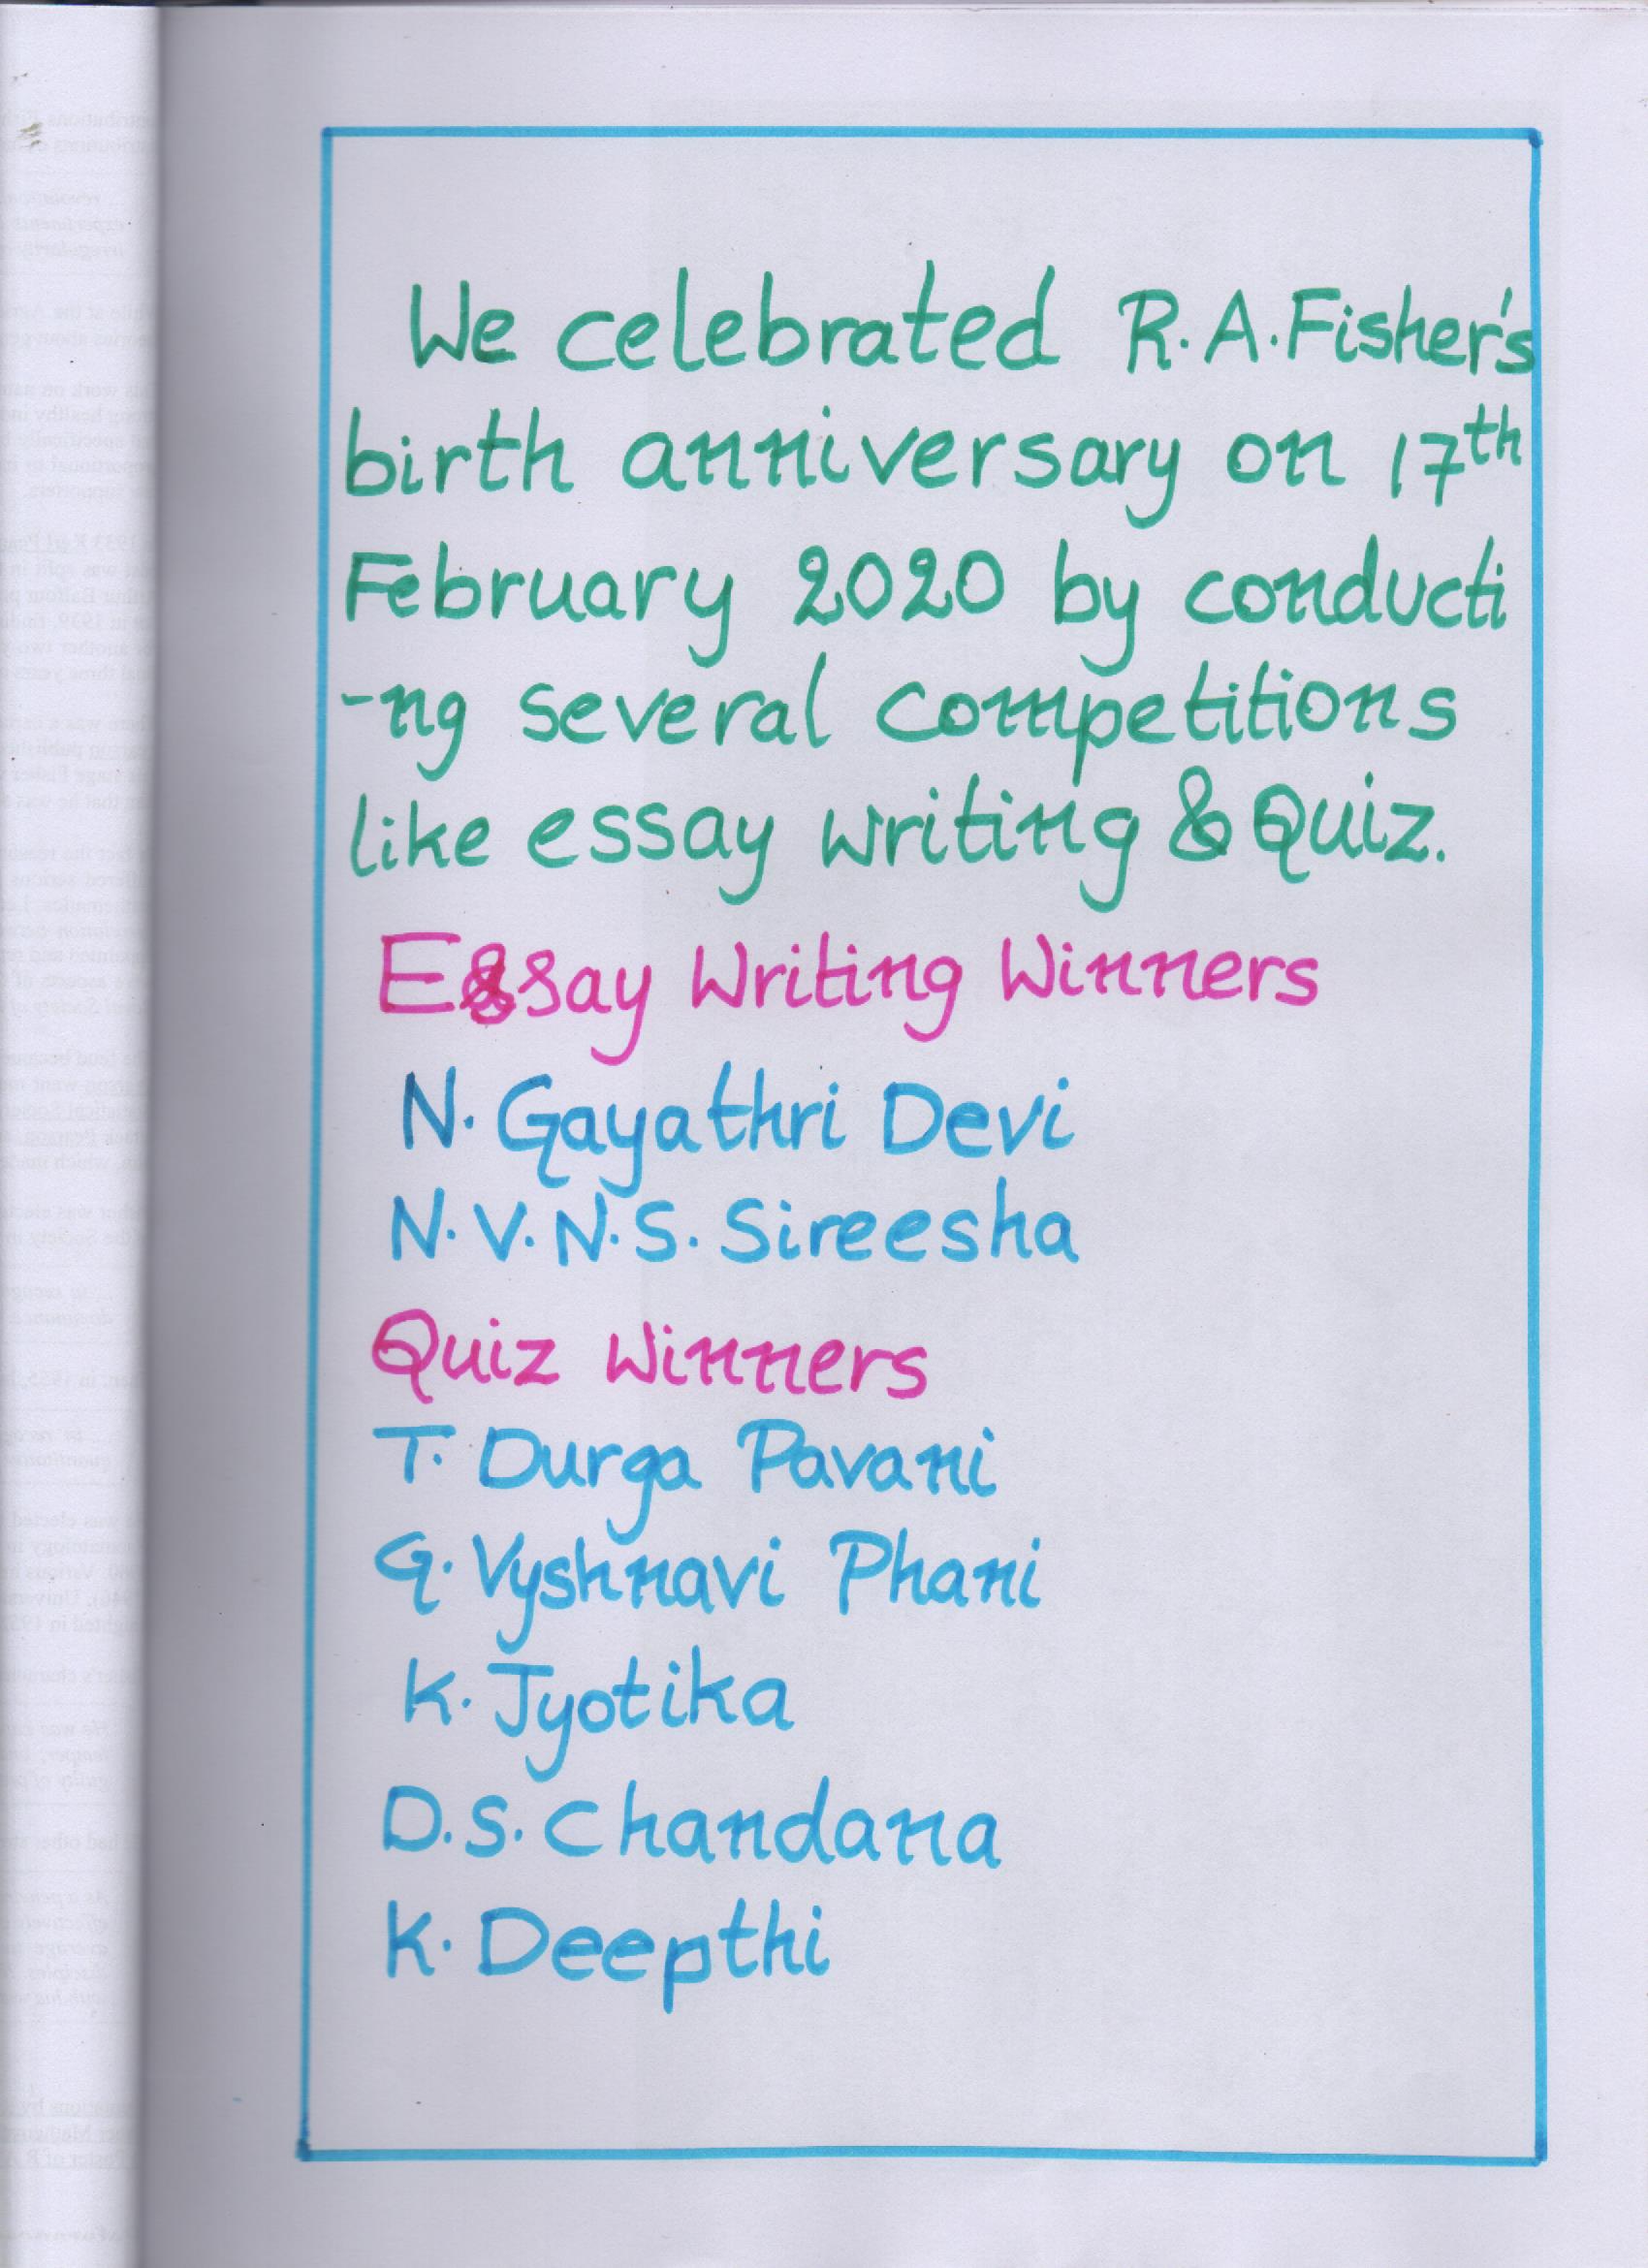 We celebrated R.A.Fisher's
birth anniversary on 17th
February 2020 by conducti
-ng several competitions
like essay writing & Quiz.
Essay Writing Winners
N. Gayathri Devi
N.V.N.S. Sireesha
Quiz Winners
T. Durga Pavani
G. Vyshnavi Phani
K. Jyotika
D.S. Chandana
K. Deepthi